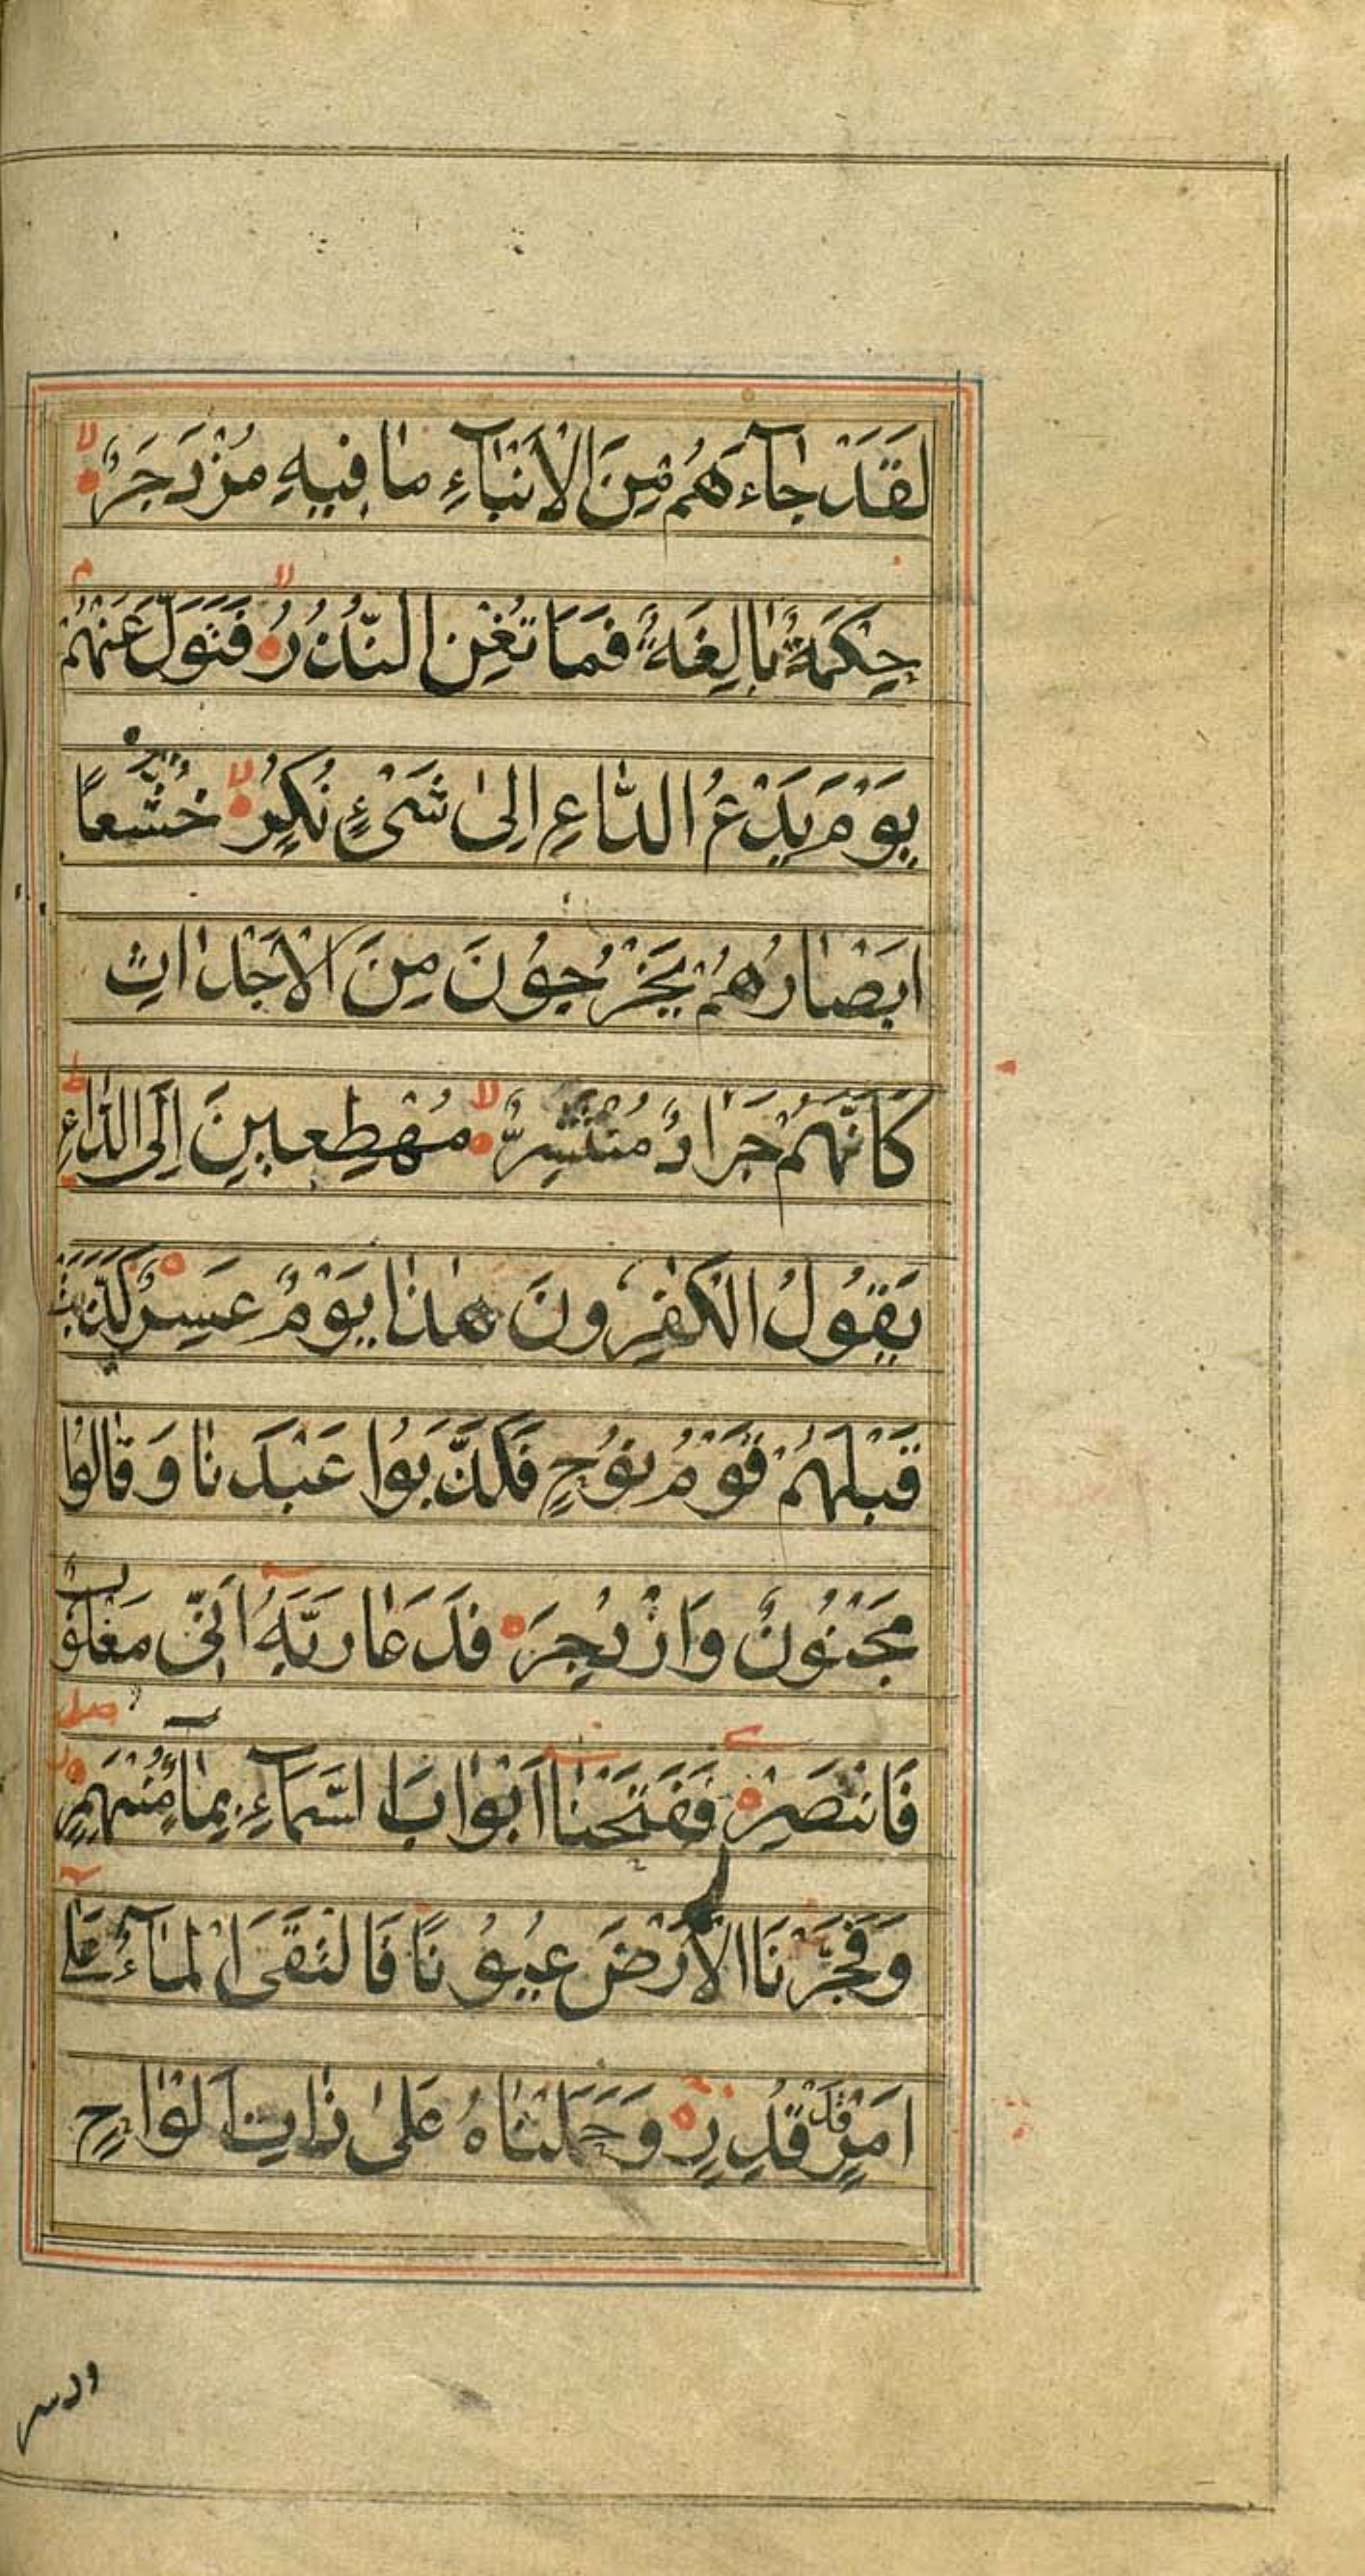 لَقَدْ جاٰۤءَهُمْ مِنَ الْاَنْبٰاۤءِ ماٰ فِيهِ مُزْدَجَرٌ لا
حِكْمَةٌ بٰالِغَةٌ فَمَا تُغْنِ النُّذُرُ لا فَتَوَلَّ عَنْهُمْ م
يَوْمَ يَدْعُ الدّٰاعِ اِلىٰ شَیْءٍ نُكُرٍ لا خُشَّعاً
اَبْصٰارُهُمْ يَخْرُجُونَ مِنَ الْاَجْدٰاثِ
كَاَنَّهُمْ جَرَادٌ مُنْتَشِرٌ لا مُهْطِعِينَ اِلَى الدّٰاعِ ط
يَقُولُ الْكٰفِرُونَ هٰذٰا يَوْمٌ عَسِرٌ كَذَّبَتْ
قَبْلَهُمْ قَوْمُ نُوْحٍ فَكَذَّبُوا عَبْدَنٰا وَقٰالُوا
مَجْنُونٌ وَازْدُجِرَ فَدَعٰا رَبَّهُ اَنّٖی مَغْلُوبٌ
فَانْتَصِرْ فَفَتَحْنٰا اَبْوٰابَ السَّمَاۤءِ بِمٰاۤءٍ مُنْهَمِرٍ
وَفَجَّرْنَا الْاَرْضَ عُيُوْنًا فَالْتَقَی الْمٰاۤءُ عَلٰۤی
اَمْرٍ قَدْ قُدِرَ وَحَمَلْنٰاهُ عَلىٰ ذٰاتِ اَلْوٰاحٍ
ودسر